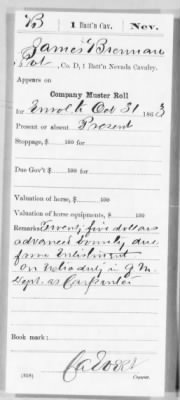 B | 1 Batt'n Cav. | Nev.
James Brennan
Pvt, Co. D, 1 Batt'n Nevada Cavalry.
Appears on
Company Muster Roll
for Enrol to Oct 31, 1863
Present or absent Present
Stoppage, $ 100 for
Due Gov't $ 100 for
Valuation of horse, $ 100
Valuation of horse equipments, $ 100
Remarks: Twenty five dollars
advanced bounty due
from Enlistment
On extra duty in Q.M.
Dept. as Carpenter
Book mark:
(858)
Copyist.